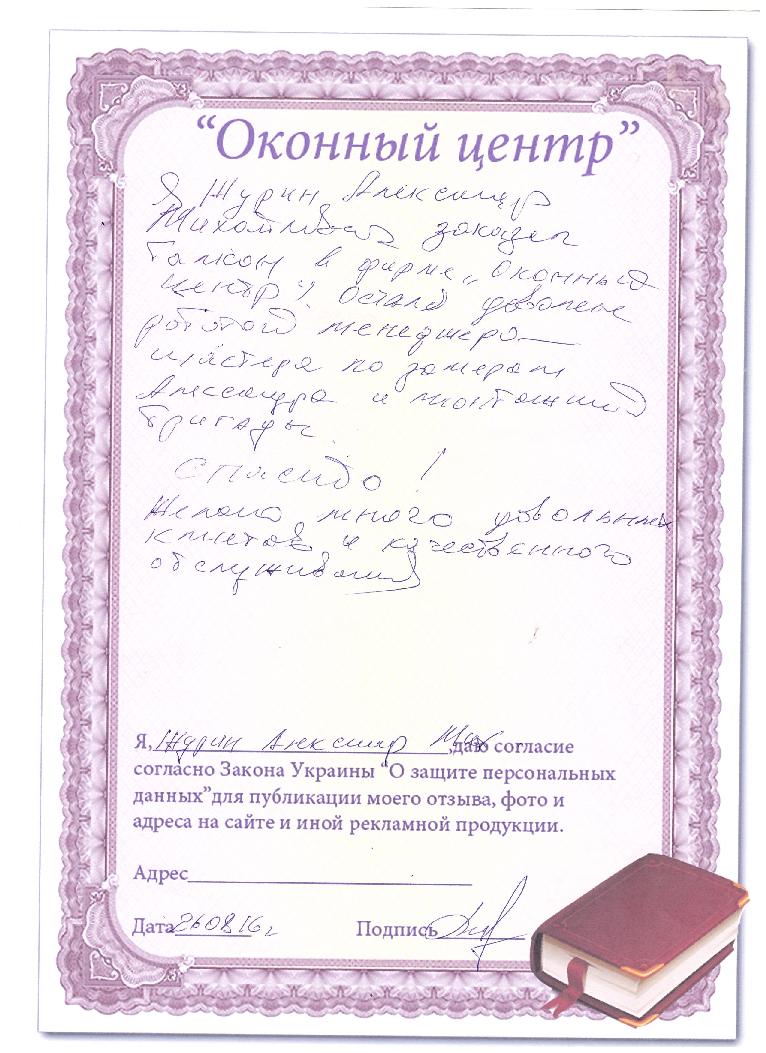 “Оконный центр”
Я Журин Александр
Михайлович заказал
балкон в фирме „Оконный
центр“. Остался доволен
работой менеджера
мастера по замерам
Александра и монтажной
бригады.
Спасибо!
Желаю много довольных
клиентов и качественного
обслуживания
Я, Журин Александр Мих ,даю согласие
согласно Закона Украины “О защите персональных
данных”для публикации моего отзыва, фото и
адреса на сайте и иной рекламной продукции.
Адрес
Дата 26 08 16 г Подпись